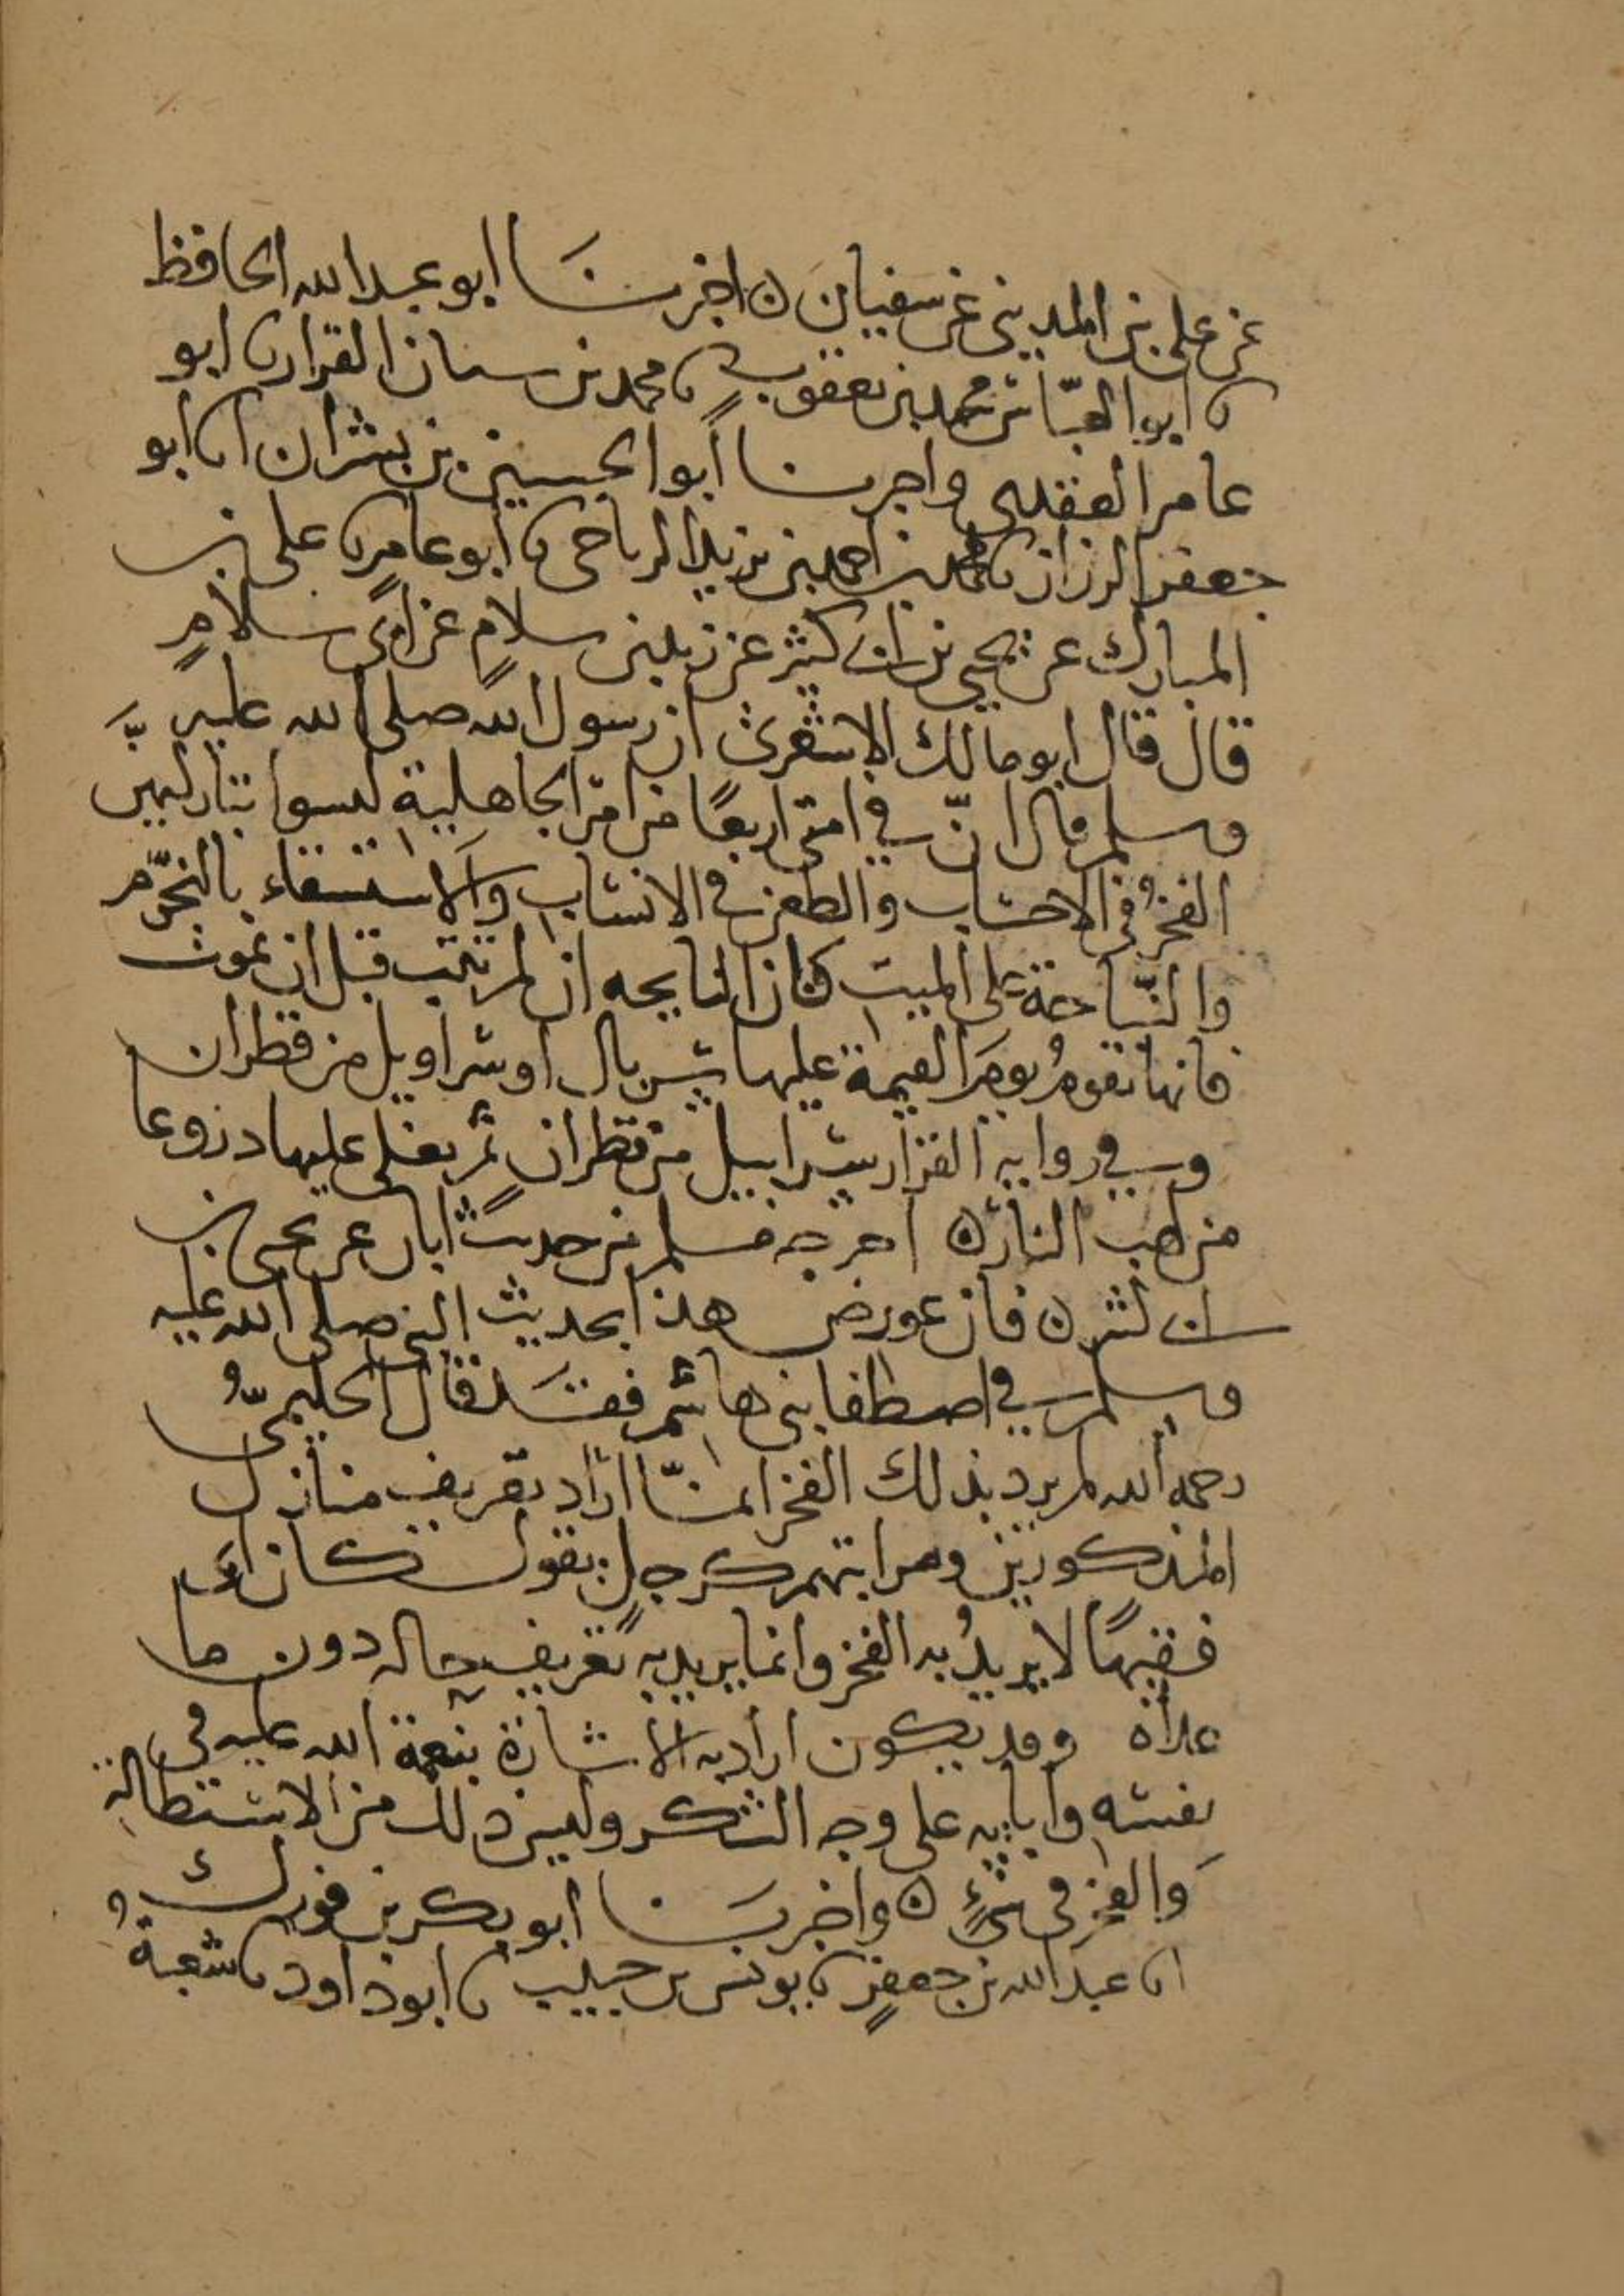 عن علي بن المديني عن سفيان ٥ اخبرنا ابو عبد الله الحافظ
نا ابو العباس محمد بن يعقوب نا محمد بن سنان القزاز نا ابو
عامر العقدي واخبرنا ابو الحسين بن بشران انا ابو
جعفر الرزاز نا محمد بن احمد بن يزيد الرياحي نا ابو عامر نا علي بن
المبارك عن يحيى بن ابي كثير عن زيد بن سلام عن ابي سلام
قال قال ابو مالك الاشعري ان رسول الله صلى الله عليه
وسلم قال ان في امتي اربعا من امر الجاهلية ليسوا بتاركيهن
الفخر في الاحساب والطعن في الانساب والاستسقاء بالنجوم
والنياحة على الميت فان النايحه ان لم تتب قبل ان تموت
فانها تقوم يوم القيمة عليها سربال او سراويل من قطران
وفي رواية القزاز سرابيل من قطران ثم يغلى عليها دروعا
من لهب النار ٥ اخرجه مسلم من حديث ابان عن يحيى بن
ابي كثير ٥ فان عورض هذا بحديث النبي صلى الله عليه
وسلم في اصطفا بني هاشم فقد قال الحليمي
رحمه الله لم يرد بذلك الفخر انما اراد تعريف منازل
المذكورين ومراتبهم كرجل يقول كان ابي
فقيها لا يريد به الفخر وانما يريد به تعريف حاله دون ما
عداه وقد يكون اراد به الاشارة بنعمة الله عليه في
نفسه وابايه على وجه الشكر وليس ذلك من الاستطالة
والفخر في شيء ٥ واخبرنا ابو بكر بن فورك
انا عبد الله بن جعفر نا يونس بن حبيب نا ابو داود نا شعبة